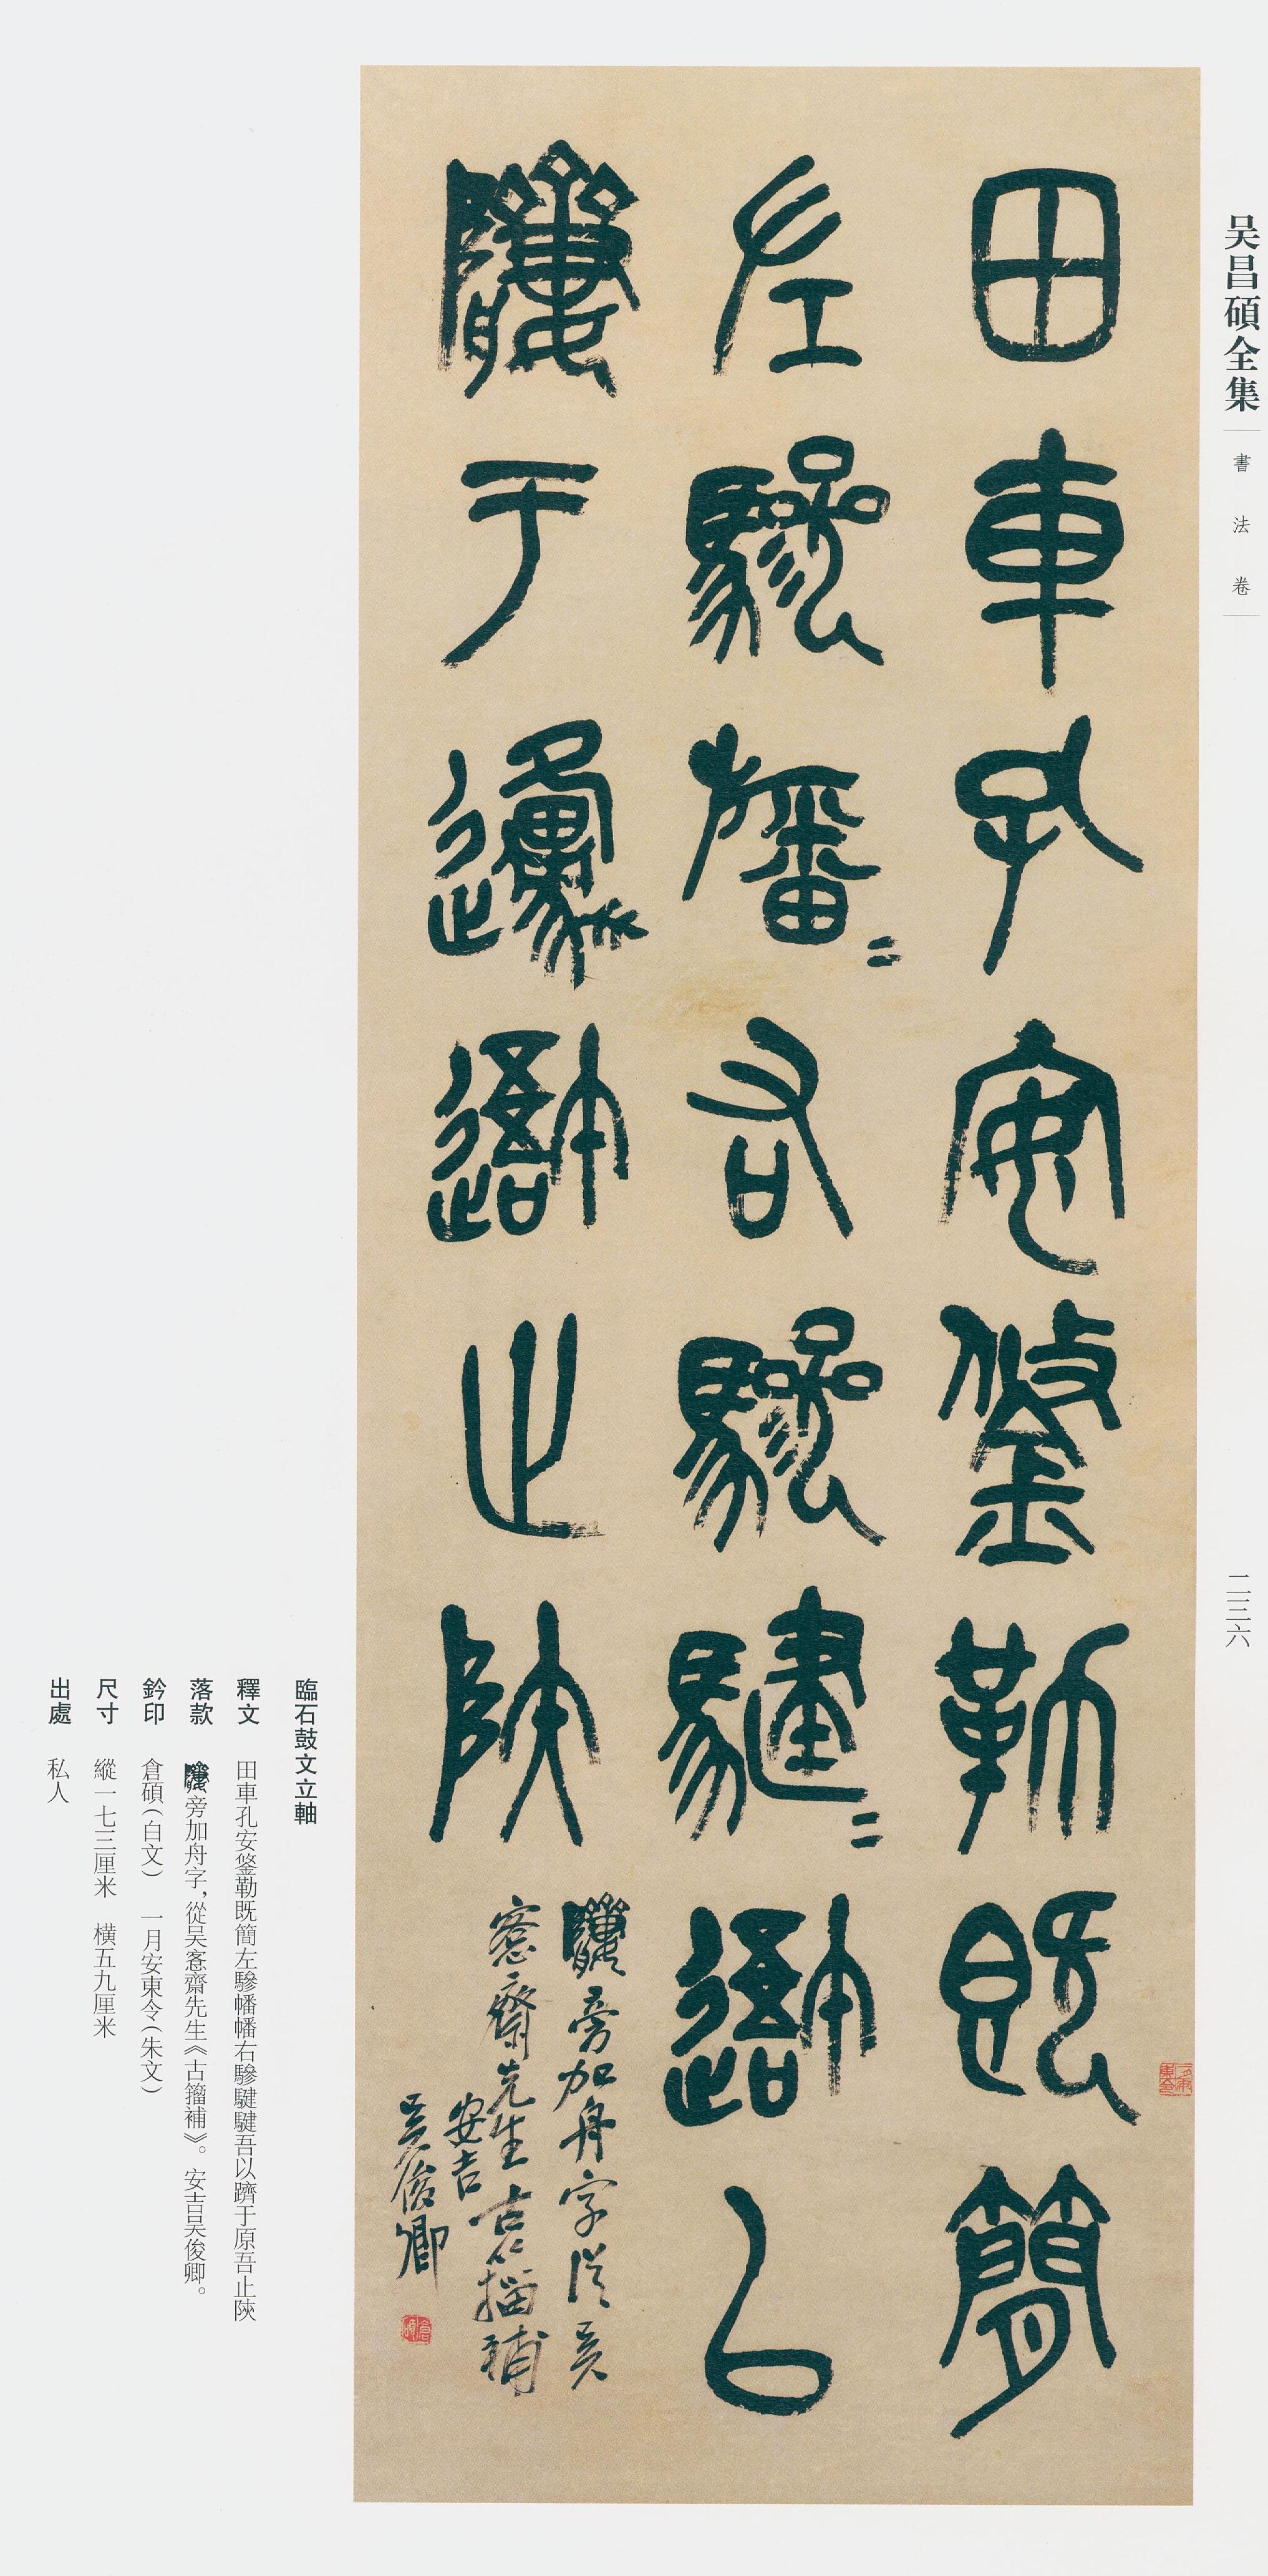 吴昌碩全集
書法卷
二三六
田車孔安鋚勒既簡
左驂旛=右驂騝=䢩㠯
隮于邍䢩止陝
旁加舟字從吴
愙齋先生古籀補
安吉
吴俊卿
倉碩
臨石鼓文立軸
釋文 田車孔安鋚勒既簡左驂幡幡右驂騝騝吾以隮于原吾止陝
落款 旁加舟字,從吴愙齋先生《古籀補》。安吉吴俊卿。
鈐印 倉碩(白文) 一月安東令(朱文)
尺寸 縱一七三厘米 橫五九厘米
出處 私人